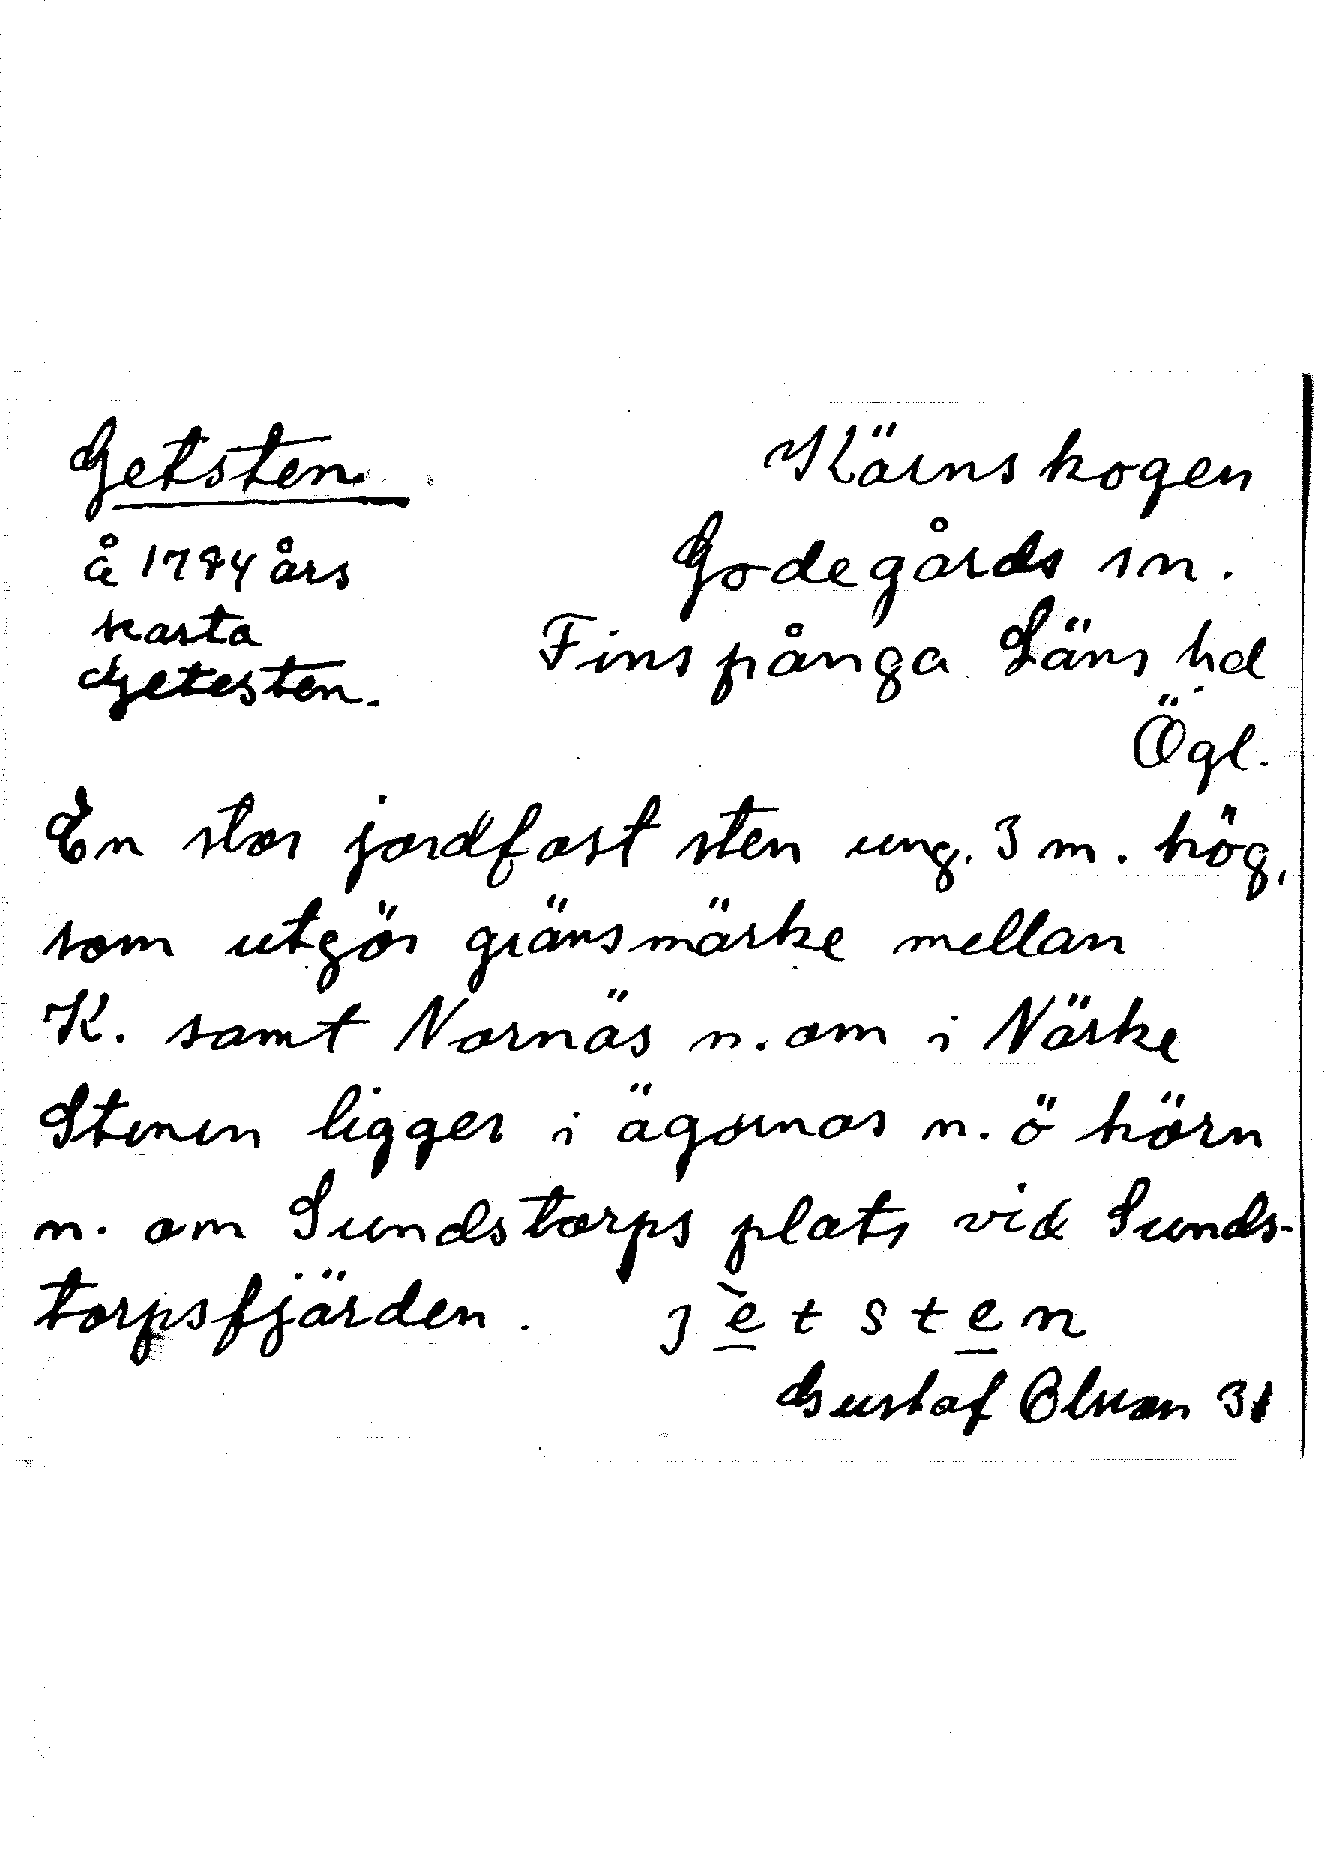 Getsten.
å 1784 års
karta
Getesten.
Kärnskogen
Godegårds sn.
Finspånga Läns hd
Ögl.
En stor jordfast sten ung. 3 m. hög,
som utgör gränsmärke mellan
K. samt Nornäs n. om i Närke
Stenen ligger i ägornas n. ö hörn
n. om Sundstorps plats vid Sunds-
torpsfjärden. jè̱tste̱n
Gustaf Olsson 31